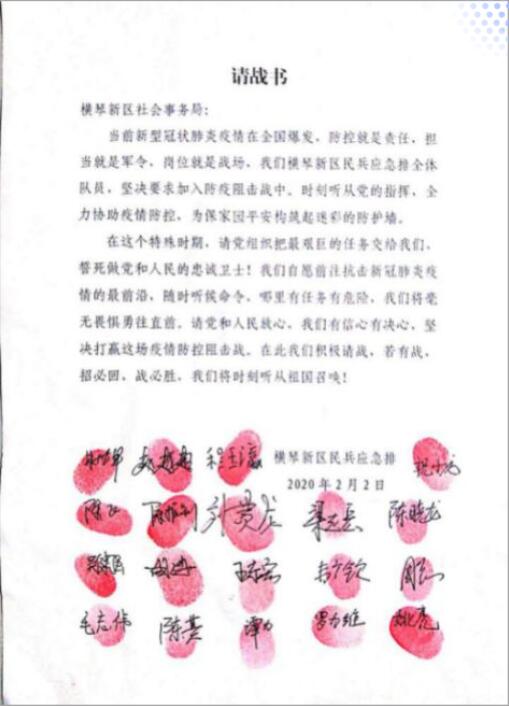 请战书
横琴新区社会事务局：
当前新型冠状肺炎疫情在全国爆发，防控就是责任，担
当就是军令，岗位就是战场，我们横琴新区民兵应急排全体
队员，坚决要求加入防疫阻击战中。时刻听从党的指挥，全
力协助疫情防控，为保家园平安构筑起迷彩的防护墙。
在这个特殊时期，请党组织把最艰巨的任务交给我们，
誓死做党和人民的忠诚卫士！我们自愿前往抗击新冠肺炎疫
情的最前沿，随时听候命令，哪里有任务有危险，我们将毫
无畏惧勇往直前。请党和人民放心，我们有信心有决心，坚
决打赢这场疫情防控阻击战。在此我们积极请战，若有战，
招必回，战必胜，我们将时刻听从祖国召唤！
横琴新区民兵应急排
2020年2月2日
陈晓龙
毛志伟 陈其 谭力 罗力维